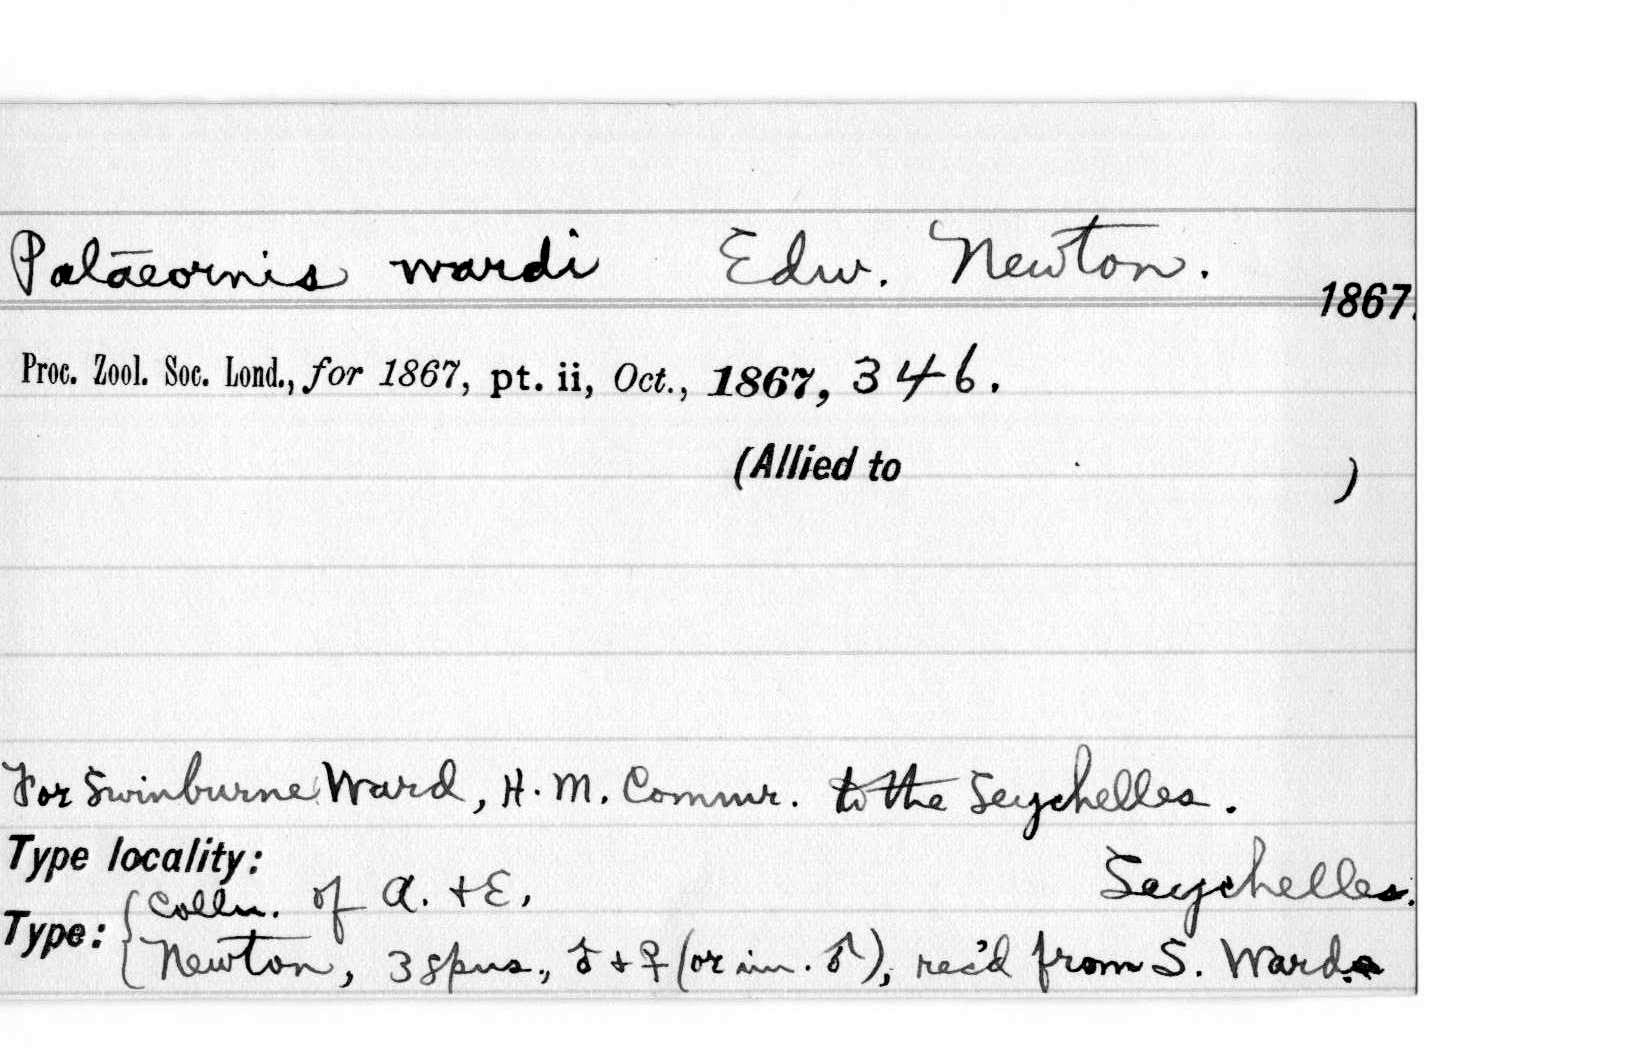 Palaeornis wardi Edw. Newton.
1867.
Proc. Zool. Soc. Lond., for 1867, pt. ii, Oct., 1867, 346.
(Allied to )
For Swinburne Ward, H. M. Commr. to the Seychelles.
Type locality: Seychelles.
Type: { Colln. of A. + E.
Newton, 3 spns., ♂ + ♀ (or im. ♂), rec'd from S. Ward.